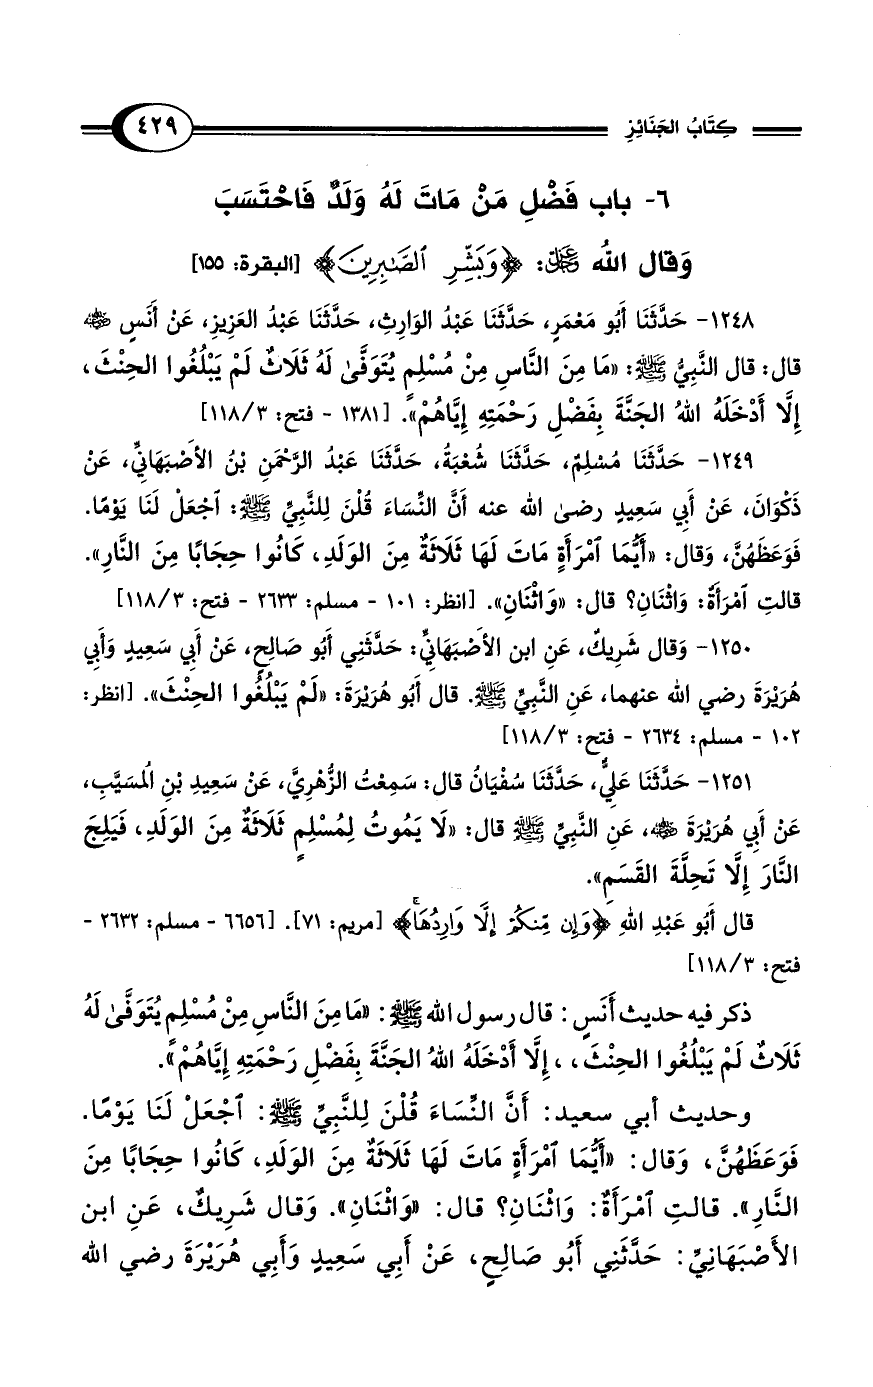 كِتَابُ الجَنَائِزِ ٤٢٩
٦- باب فَضْلِ مَنْ مَاتَ لَهُ وَلَدٌ فَاحْتَسَبَ
وَقال اللهُ ﷿: ﴿وَبَشِّرِ ٱلصَّٰبِرِينَ﴾ [البقرة: ١٥٥]
١٢٤٨- حَدَّثَنَا أَبُو مَعْمَرٍ، حَدَّثَنَا عَبْدُ الوَارِثِ، حَدَّثَنَا عَبْدُ العَزِيزِ، عَنْ أَنَسٍ ﵁
قال: قال النَّبِيُّ ﷺ: «مَا مِنَ النَّاسِ مِنْ مُسْلِمٍ يُتَوَفَّىٰ لَهُ ثَلَاثٌ لَمْ يَبْلُغُوا الحِنْثَ،
إِلَّا أَدْخَلَهُ اللهُ الجَنَّةَ بِفَضْلِ رَحْمَتِهِ إِيَّاهُمْ». [١٣٨١ - فتح: ٣/١١٨]
١٢٤٩- حَدَّثَنَا مُسْلِمٌ، حَدَّثَنَا شُعْبَةُ، حَدَّثَنَا عَبْدُ الرَّحْمَنِ بْنُ الأَصْبَهَانِيِّ، عَنْ
ذَكْوَانَ، عَنْ أَبِي سَعِيدٍ رضى الله عنه أَنَّ النِّسَاءَ قُلْنَ لِلنَّبِيِّ ﷺ: ٱجْعَلْ لَنَا يَوْمًا.
فَوَعَظَهُنَّ، وَقال: «أَيُّمَا ٱمْرَأَةٍ مَاتَ لَهَا ثَلَاثَةٌ مِنَ الوَلَدِ، كَانُوا حِجَابًا مِنَ النَّارِ».
قالتِ ٱمْرَأَةٌ: وَاثْنَانِ؟ قال: «وَاثْنَانِ». [انظر: ١٠١ - مسلم: ٢٦٣٣ - فتح: ٣/١١٨]
١٢٥٠- وَقال شَرِيكٌ، عَنِ ابن الأَصْبَهَانِيِّ: حَدَّثَنِي أَبُو صَالِحٍ، عَنْ أَبِي سَعِيدٍ وَأَبِي
هُرَيْرَةَ رضي الله عنهما، عَنِ النَّبِيِّ ﷺ. قال أَبُو هُرَيْرَةَ: «لَمْ يَبْلُغُوا الحِنْثَ». [انظر:
١٠٢ - مسلم: ٢٦٣٤ - فتح: ٣/١١٨]
١٢٥١- حَدَّثَنَا عَلِيٌّ، حَدَّثَنَا سُفْيَانُ قال: سَمِعْتُ الزُّهْرِيَّ، عَنْ سَعِيدِ بْنِ الُمسَيَّبِ،
عَنْ أَبِي هُرَيْرَةَ ﵁، عَنِ النَّبِيِّ ﷺ قال: «لَا يَمُوتُ لِمُسْلِمٍ ثَلَاثَةٌ مِنَ الوَلَدِ، فَيَلِجَ
النَّارَ إِلَّا تَحِلَّةَ القَسَمِ».
قال أَبُو عَبْدِ اللهِ ﴿وَإِن مِّنكُمْ إِلَّا وَارِدُهَاۚ﴾ [مريم: ٧١]. [٦٦٥٦ - مسلم: ٢٦٣٢ -
فتح: ٣/١١٨]
ذكر فيه حديث أَنَسٍ: قال رسول الله ﷺ: «مَا مِنَ النَّاسِ مِنْ مُسْلِمٍ يُتَوَفَّىٰ لَهُ
ثَلَاثٌ لَمْ يَبْلُغُوا الحِنْثَ، ، إِلَّا أَدْخَلَهُ اللهُ الجَنَّةَ بِفَضْلِ رَحْمَتِهِ إِيَّاهُمْ».
وحديث أبي سعيد: أَنَّ النِّسَاءَ قُلْنَ لِلنَّبِيِّ ﷺ: ٱجْعَلْ لَنَا يَوْمًا.
فَوَعَظَهُنَّ، وَقال: «أَيُّمَا ٱمْرَأَةٍ مَاتَ لَهَا ثَلَاثَةٌ مِنَ الوَلَدِ، كَانُوا حِجَابًا مِنَ
النَّارِ». قالتِ ٱمْرَأَةٌ: وَاثْنَانِ؟ قال: «وَاثْنَانِ». وَقال شَرِيكٌ، عَنِ ابن
الأَصْبَهَانِيِّ: حَدَّثَنِي أَبُو صَالِحٍ، عَنْ أَبِي سَعِيدٍ وَأَبِي هُرَيْرَةَ رضي الله